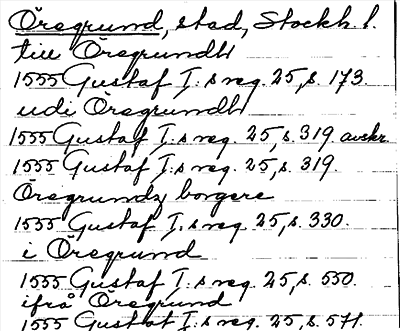 Öregrund, stad, Stockh. l.
till Öregrundh
1555 Gustaf I:s reg. 25, s. 173.
udi Öregrundh
1555 Gustaf I:s reg. 25, s. 319 avskr.
1555 Gustaf I:s reg. 25, s. 319.
Öregrundz borgere
1555 Gustaf I:s reg. 25, s. 330.
i Öregrund
1555 Gustaf I:s reg. 25, s. 550.
ifrå Öregrund
1555 Gustaf I:s reg. 25, s. 571.